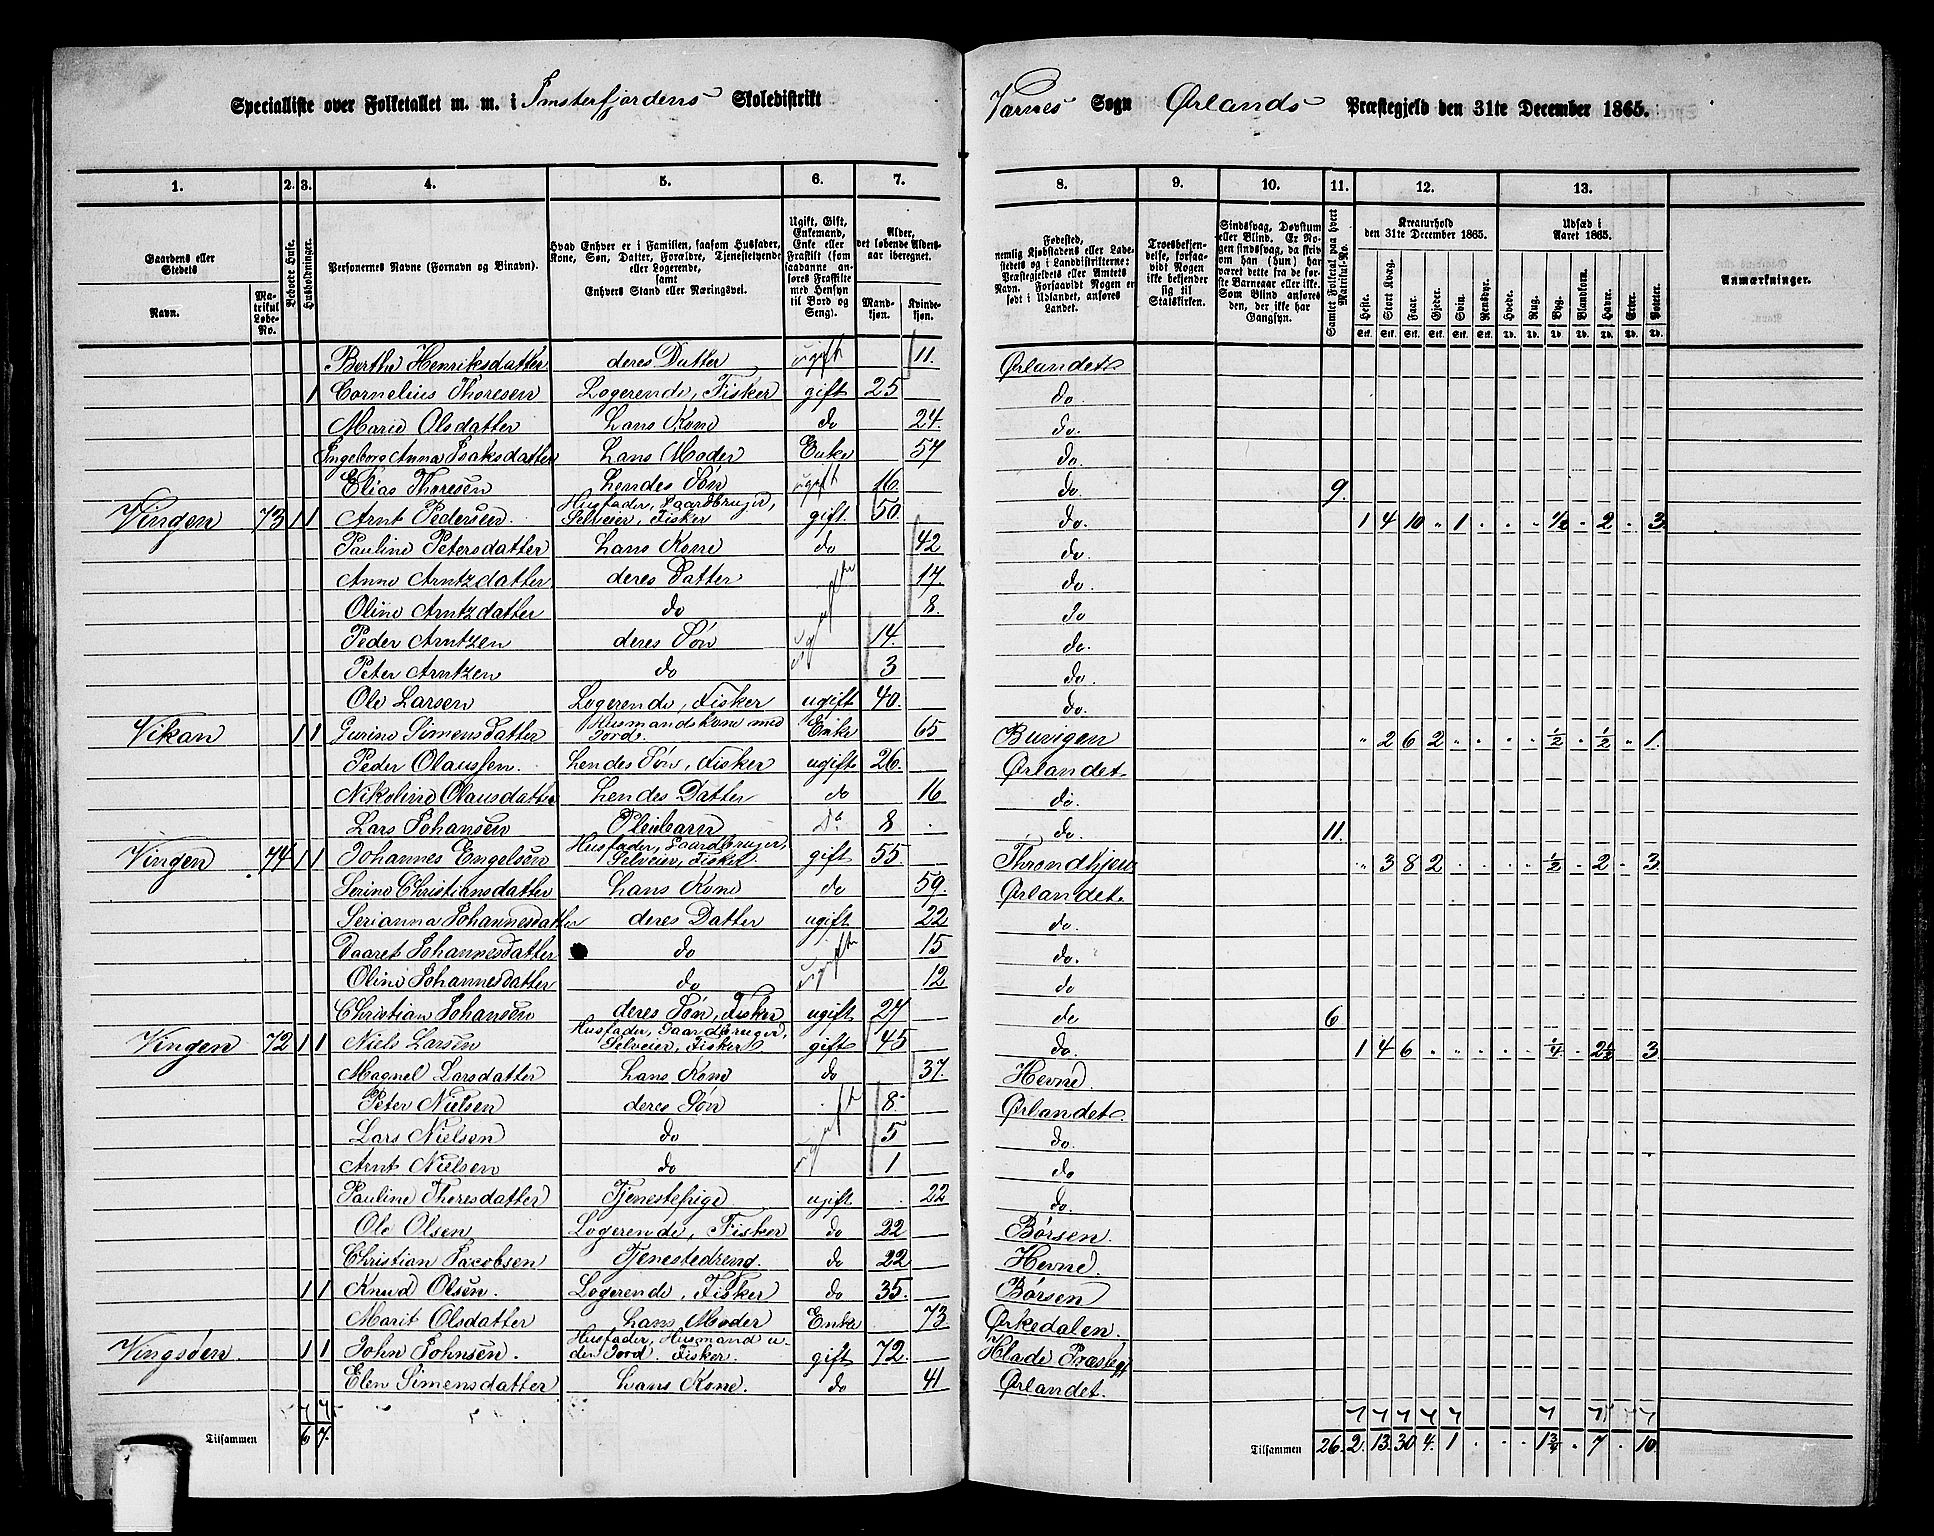 Specialliste over Folketallet m. m. i Imsterfjordens Skoledistrikt Værnes Sogn Ørlands Præstegjeld den 31te December 1865.
1. 2. 3. 4. 5. 6. 7. 8. 9. 10. 11. 12. 13.
Gaardens eller Stedets
Navn. Matrikul Løbe-No.
Beboede Huse.
Husholdninger.
Personernes Navne (Fornavn og Binavn).
Hvad Enhver er i Familien, saasom Husfader, Kone, Søn, Datter, Forældre, Tjenestetyende eller Logerende, samt Enhvers Stand eller Næringsvei.
Ugift, Gift, Enkemand, Enke eller Fraskilt (som saadanne anføres Fraskilte med Hensyn til Bord og Seng).
Alder, det løbende Alders-aar iberegnet.
Mandkjøn. Kvindekjøn.
Fødested, nemlig Kjøbstadens eller Ladestedets og i Landdistrikterne: Præstegjeldets eller Amtets Navn. Forsaavidt Nogen er født i Udlandet, anføres Landet.
Troesbekjendelse, forsaavidt Nogen ikke bekjender sig til Statskirken.
Sindssvag, Døvstum eller Blind. Er Nogen sindssvag, da skrives om han (hun) har været dette fra de første Barneaar eller ikke. Som Blind anføres den, der ikke har Gangsyn.
Samlet Folketal paa hvert Matrikul-No.
Kreaturhold den 31te December 1865.
Heste. Stort Kvæg. Faar. Gjeder. Svin. Rensdyr.
Udsæd i Aaret 1865.
Hvede. Rug. Byg. Blandkorn. Havre. Erter. Poteter.
Anmærkninger.
Berthe Henriksdatter deres Datter ugift 11. Ørlandet
1 Cornelius Thoresen Logerende, Fisker gift 25 do.
Marie Olsdatter hans Kone do 24. do.
Ingeborg Anna Isaksdatter hans Moder Enke 57 do.
Elias Thoresen hendes Søn ugift 16. do. 9.
Vingen 73 1 1 Arnt Pedersen. Husfader, Gaardbruger, Selveier, Fisker gift 50. do. 1 4 10 " 1 . . . ½ . 2 . 3.
Pauline Petersdatter hans Kone do 42 do.
Anne Arntzdatter deres Datter ugifte 17. do.
Oline Arntzdatter do 8. do
Peder Arntzen deres Søn ugifte 14. do.
Peter Arntzen do 3 do.
Ole Larsen Logerende, Fisker ugift 40. do.
Vikan 1 1 Gurine Simensdatter Husmandskone med Jord. Enke 65 Buvigen " 2 6 2 . . . . ½ . ½ . 1.
Peder Olaussen. hendes Søn, Fisker ugift 26. Ørlandet
Nikoline Olausdatter hendes Datter do 16 do.
Lars Johansen Pleiebarn Do 8 do. 11.
Vingen 74 1 1 Johannes Engelsen Husfader, Gaardbruger, Selveier, Fisker gift 55 Throndhjem " 3 8 2 . . . . ½ . 2 . 3.
Serine Christiansdatter hans Kone do 59. Ørlandet.
Serianna Johannesdatter deres Datter ugift 22 do.
Daaret Johannesdatter do ugifte 15 do.
Oline Johannesdatter do 12 do
Christian Johansen deres Søn, Fisker ugift 27 do 6
Vingen 72 1 1 Niels Larsen Husfader, Gaardbruger, Selveier, Fisker gift 45 do. 1 4 6 . . . . . ¼ . 2½ . 3
Magnel Larsdatter hans Kone do 37. Hevne.
Peter Nielsen deres Søn ugift 8. Ørlandet.
Lars Nielsen do 5 do.
Arnt Nielsen do 1 do
Pauline Thoresdatter Tjenestepige ugift 22 do.
Ole Olsen Logerende, Fisker do 22 Børsen
Christian Jacobsen Tjenestedreng. do 22 Hevne.
1 1 Knud Olsen. Logerende, Fisker do 35. Børsen
Marit Olsdatter hans Moder Enke 73 Ørkedalen.
Vingsøen 1 1 John Johnsen. Husfader, Husmand uden Jord. Fisker. gift 72. Hlade Præstegj
Elen Simensdatter hans Kone. do 41 Ørlandet.
Tilsammen 6 7. Tilsammen 26. 2. 13. 30 4. 1 . . . 1¾ . 7 . 10.